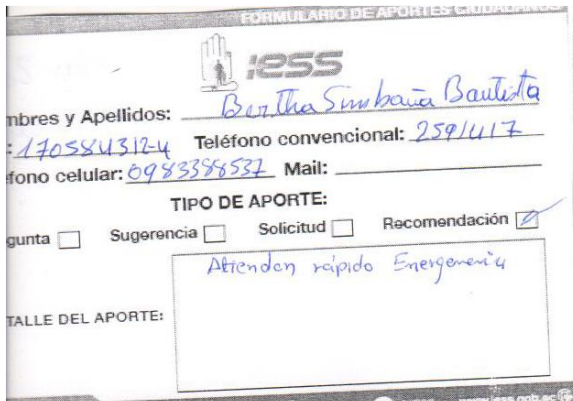 FORMULARIO DE APORTES CIUDADANOS
IESS
mbres y Apellidos: Bertha Simbaña Bautista
: 170584312-4 Teléfono convencional: 2591417
éfono celular: 0983388537 Mail:
TIPO DE APORTE:
gunta Sugerencia Solicitud Recomendación
TALLE DEL APORTE: Atiendan rápido Energenenia